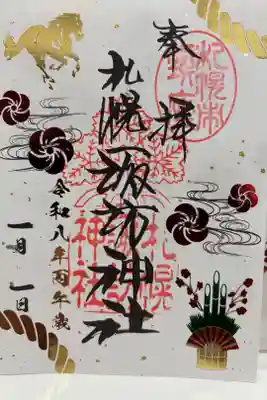 奉拝
札幌諏訪神社
札幌
諏訪
神社
令和八年丙午歳
一月一日